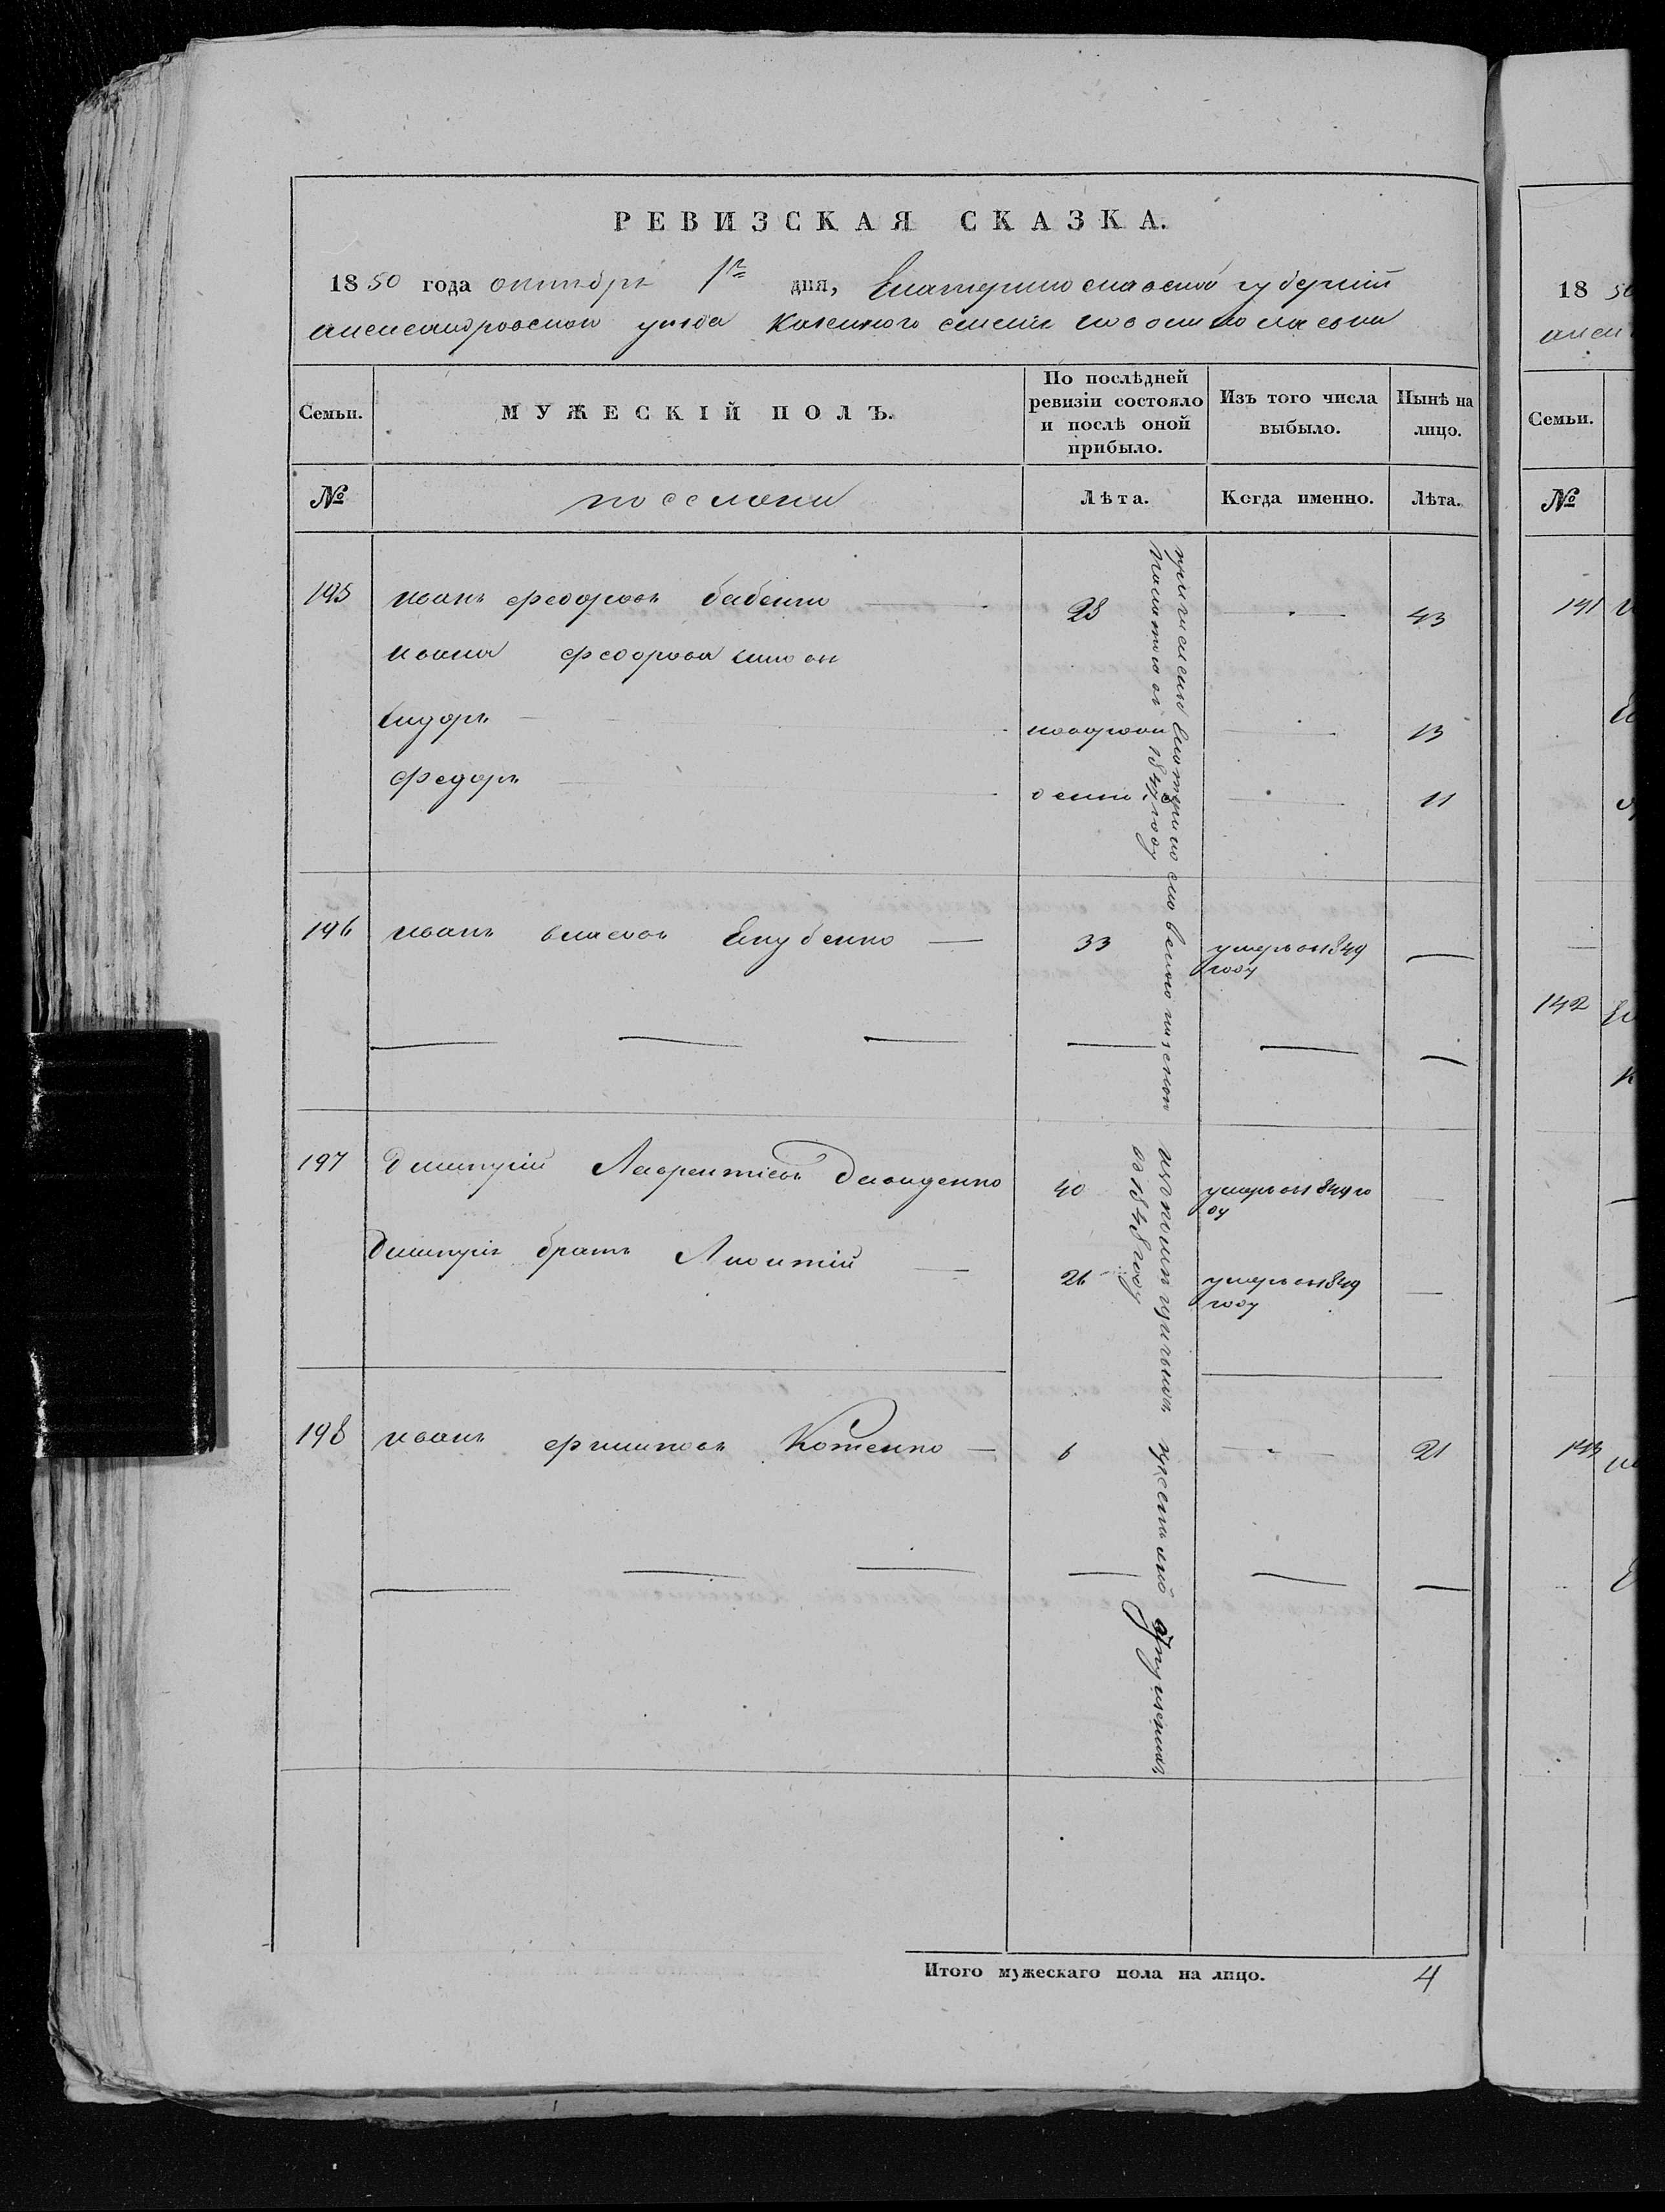 РЕВИЗСКАЯ СКАЗКА.
1850 года октября 1го дня, Екатеринославской губернiи
александровского уезда казенного селенiя новониколаевки
Семьи. МУЖЕСКІЙ ПОЛЪ. По послѣдней ревизіи состояло и послѣ оной прибыло. Изъ того числа выбыло. Нынѣ на лицо.
№ поселяни Лѣта. Когда именно. Лѣта.
195 иванъ федоровъ бабенко 28 43
ивана федорова сыновя
сидоръ новорож 13
федоръ дении 11
196 иванъ власовъ 33 умеръ въ 1849
году
197 дмитрій Лаврентіевъ давиденко 40 умеръ въ 1849 го
ду
дмитрія братъ Леонтій 26 умеръ въ 1849
году
198 иванъ филиповъ Котенко 6 21
причислены Екатеринославскою казенною
палатою 1847 году
въ 1848 году
Итого мужескаго пола на лицо. 4
18 50
Семьи.
№
141
142
143